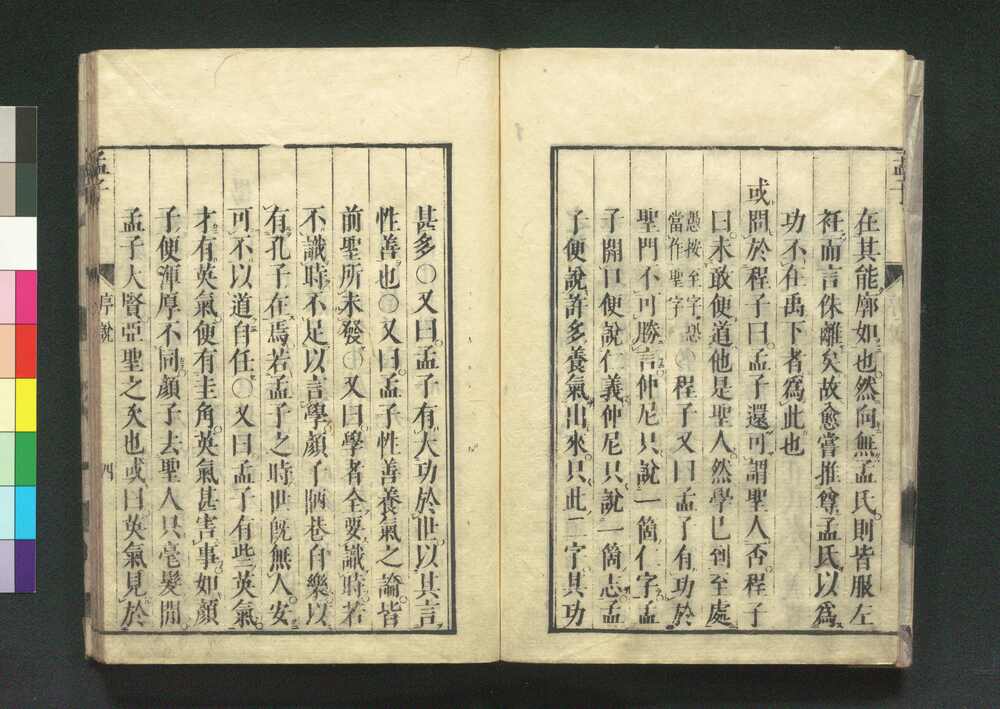 在其能廓如也然向無孟氏則皆服左
衽而言侏離矣故愈嘗推尊孟氏以爲
功不在禹下者爲此也
或問於程子曰孟子還可謂聖人否程子
曰未敢便道他是聖人然學已到至處
愚按至字恐
當作聖字
○程子又曰孟子有功於
聖門不可勝言仲尼只說一箇仁字孟
子開口便說仁義仲尼只說一箇志孟
子便說許多養氣出來只此二字其功
甚多○又曰孟子有大功於世以其言
性善也○又曰孟子性善養氣之論皆
前聖所未發○又曰學者全要識時若
不識時不足以言學顏子陋巷自樂以
有孔子在焉若孟子之時世旣無人安
可不以道自任○又曰孟子有些英氣
才有英氣便有圭角英氣甚害事如顏
子便渾厚不同顏子去聖人只毫髮閒
孟子大賢亞聖之次也或曰英氣見於
孟子
序說
四